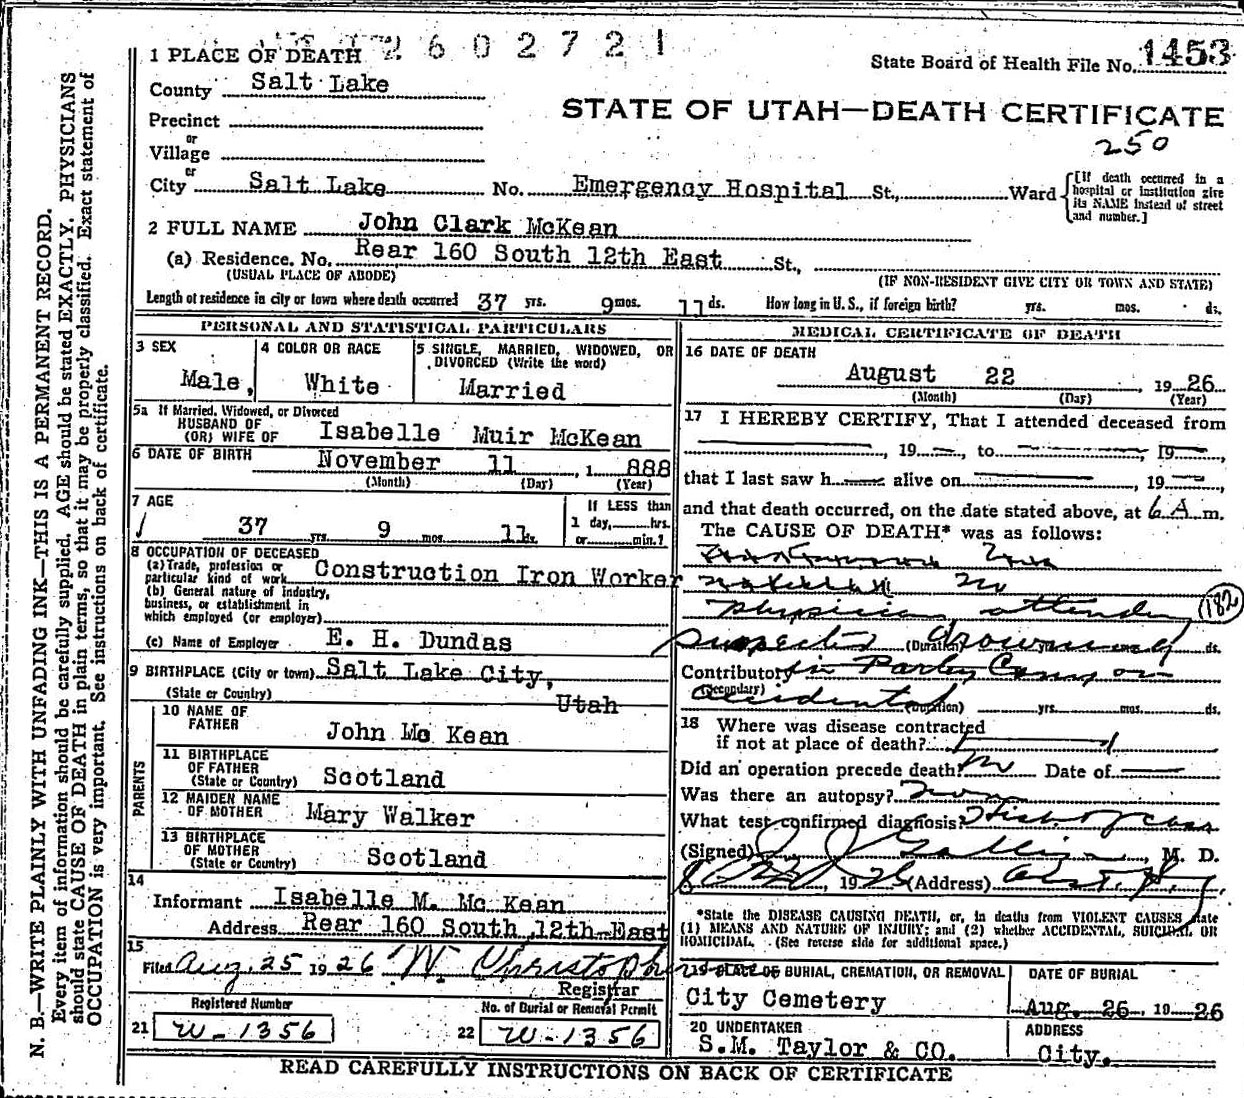 2602721
1 PLACE OF DEATH
State Board of Health File No. 1453
County Salt Lake
STATE OF UTAH—DEATH CERTIFICATE
Precinct
250
or
Village
or
City Salt Lake No. Emergency Hospital St., Ward
[If death occurred in a
hospital or institution give
its NAME instead of street
and number.]
2 FULL NAME John Clark McKean
(a) Residence. No. Rear 160 South 12th East St.,
(USUAL PLACE OF ABODE) (IF NON-RESIDENT GIVE CITY OR TOWN AND STATE)
Length of residence in city or town where death occurred 37 yrs. 9 mos. 11 ds. How long in U. S., if foreign birth? yrs. mos. ds.
PERSONAL AND STATISTICAL PARTICULARS
3 SEX
Male,
4 COLOR OR RACE
White
5 SINGLE, MARRIED, WIDOWED, OR
DIVORCED (Write the word)
Married
5a If Married, Widowed, or Divorced
HUSBAND OF
(OR) WIFE OF Isabelle Muir McKean
6 DATE OF BIRTH November 11, 1888
(Month) (Day) (Year)
7 AGE
37 yrs. 9 mos. 11 ds.
If LESS than
1 day, hrs.
or min.?
8 OCCUPATION OF DECEASED
(a) Trade, profession or
particular kind of work Construction Iron Worker
(b) General nature of industry,
business, or establishment in
which employed (or employer)
(c) Name of Employer E. H. Dundas
9 BIRTHPLACE (City or town) Salt Lake City,
(State or Country) Utah
PARENTS
10 NAME OF
FATHER John Mc Kean
11 BIRTHPLACE
OF FATHER
(State or Country) Scotland
12 MAIDEN NAME
OF MOTHER Mary Walker
13 BIRTHPLACE
OF MOTHER
(State or Country) Scotland
14
Informant Isabelle M. Mc Kean
Address Rear 160 South 12th East
15
Filed Aug. 25 1926 W. Christopher
Registrar
Registered Number
21 W-1356
No. of Burial or Removal Permit
22 W-1356
MEDICAL CERTIFICATE OF DEATH
16 DATE OF DEATH
August 22, 1926
(Month) (Day) (Year)
17 I HEREBY CERTIFY, That I attended deceased from
, 19 , to , 19 ,
that I last saw h alive on , 19 ,
and that death occurred, on the date stated above, at 6 A. m.
The CAUSE OF DEATH* was as follows:
no
physician attending
182
suspected drowning
(Duration) yrs. ds.
Contributory in Parleys Canyon
(Secondary)
accidental
(Duration) yrs. mos. ds.
18 Where was disease contracted
if not at place of death?
Did an operation precede death? no Date of
Was there an autopsy? none
What test confirmed diagnosis? History of case
(Signed) M. D.
, 1926 (Address)
*State the DISEASE CAUSING DEATH, or, in deaths from VIOLENT CAUSES state
(1) MEANS AND NATURE OF INJURY; and (2) whether ACCIDENTAL, SUICIDAL OR
HOMICIDAL. (See reverse side for additional space.)
19 PLACE OF BURIAL, CREMATION, OR REMOVAL
City Cemetery
DATE OF BURIAL
Aug. 26, 1926
20 UNDERTAKER
S.M. Taylor & CO.
ADDRESS
City.
READ CAREFULLY INSTRUCTIONS ON BACK OF CERTIFICATE
N. B.—WRITE PLAINLY WITH UNFADING INK—THIS IS A PERMANENT RECORD.
Every item of information should be carefully supplied. AGE should be stated EXACTLY. PHYSICIANS
should state CAUSE OF DEATH in plain terms, so that it may be properly classified. Exact statement of
OCCUPATION is very important. See instructions on back of certificate.